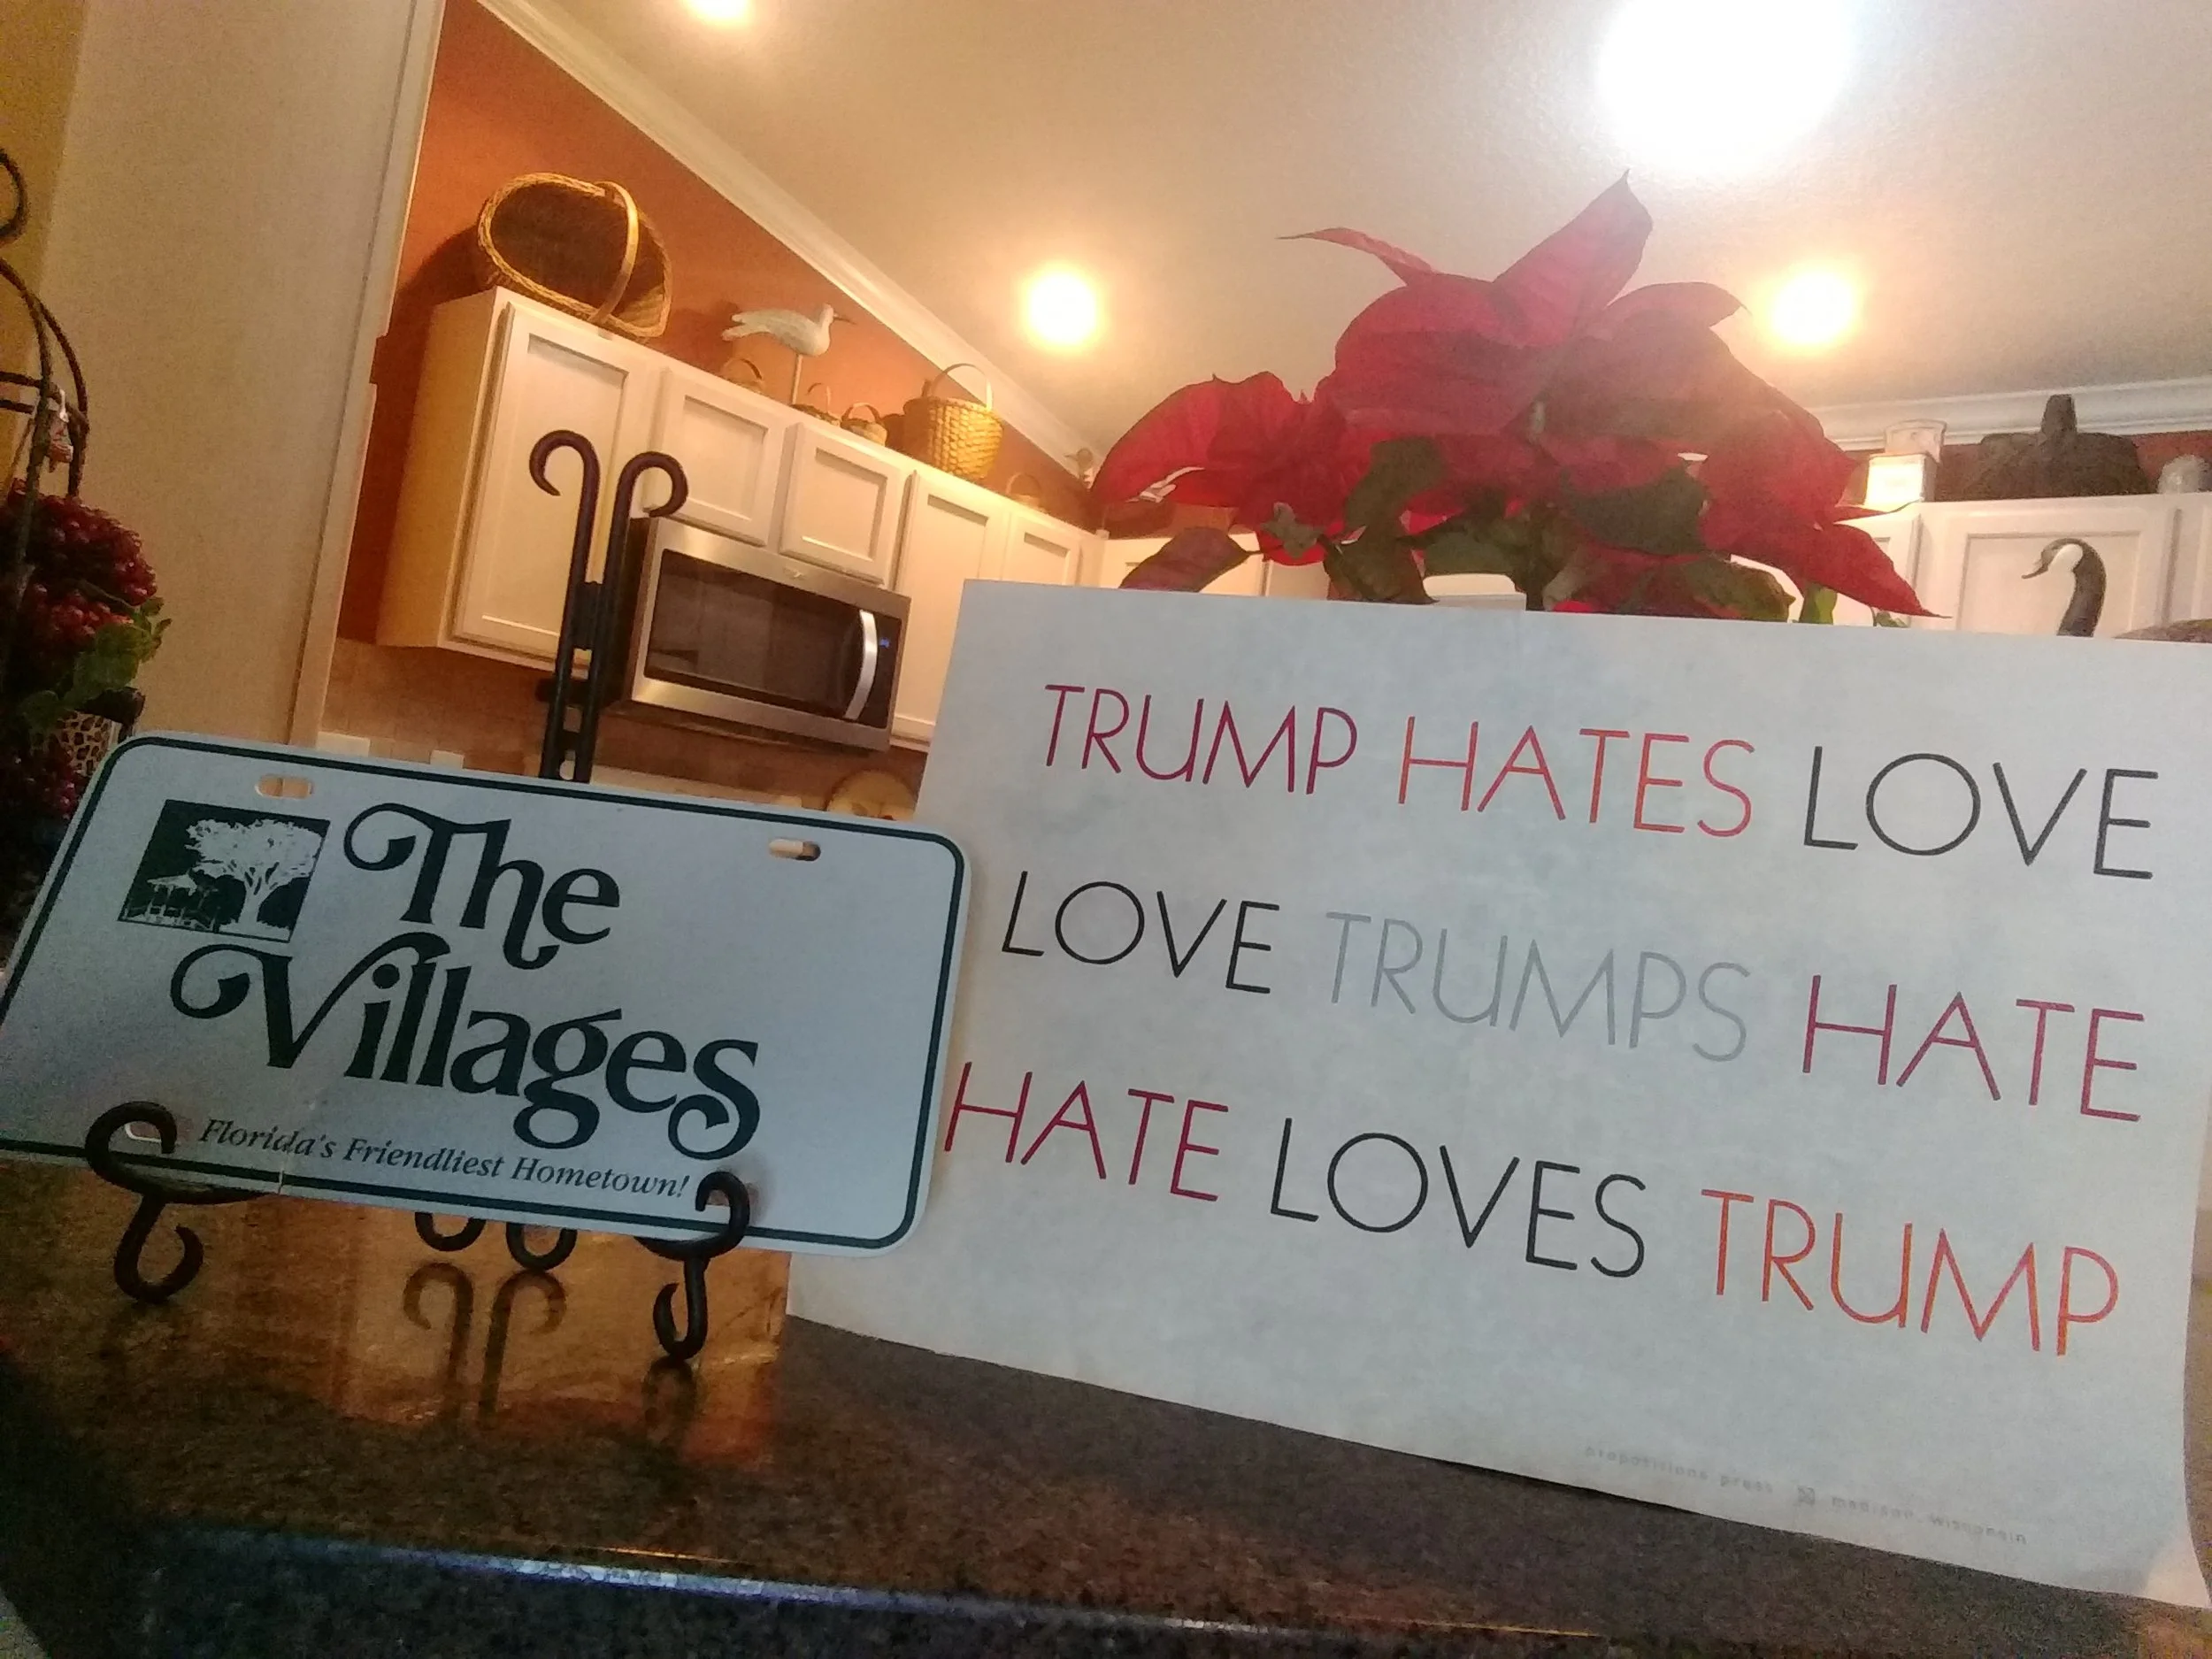 The
Villages
Florida's Friendliest Hometown!
TRUMP HATES LOVE
LOVE TRUMPS HATE
HATE LOVES TRUMP
propositions press madison, wisconsin